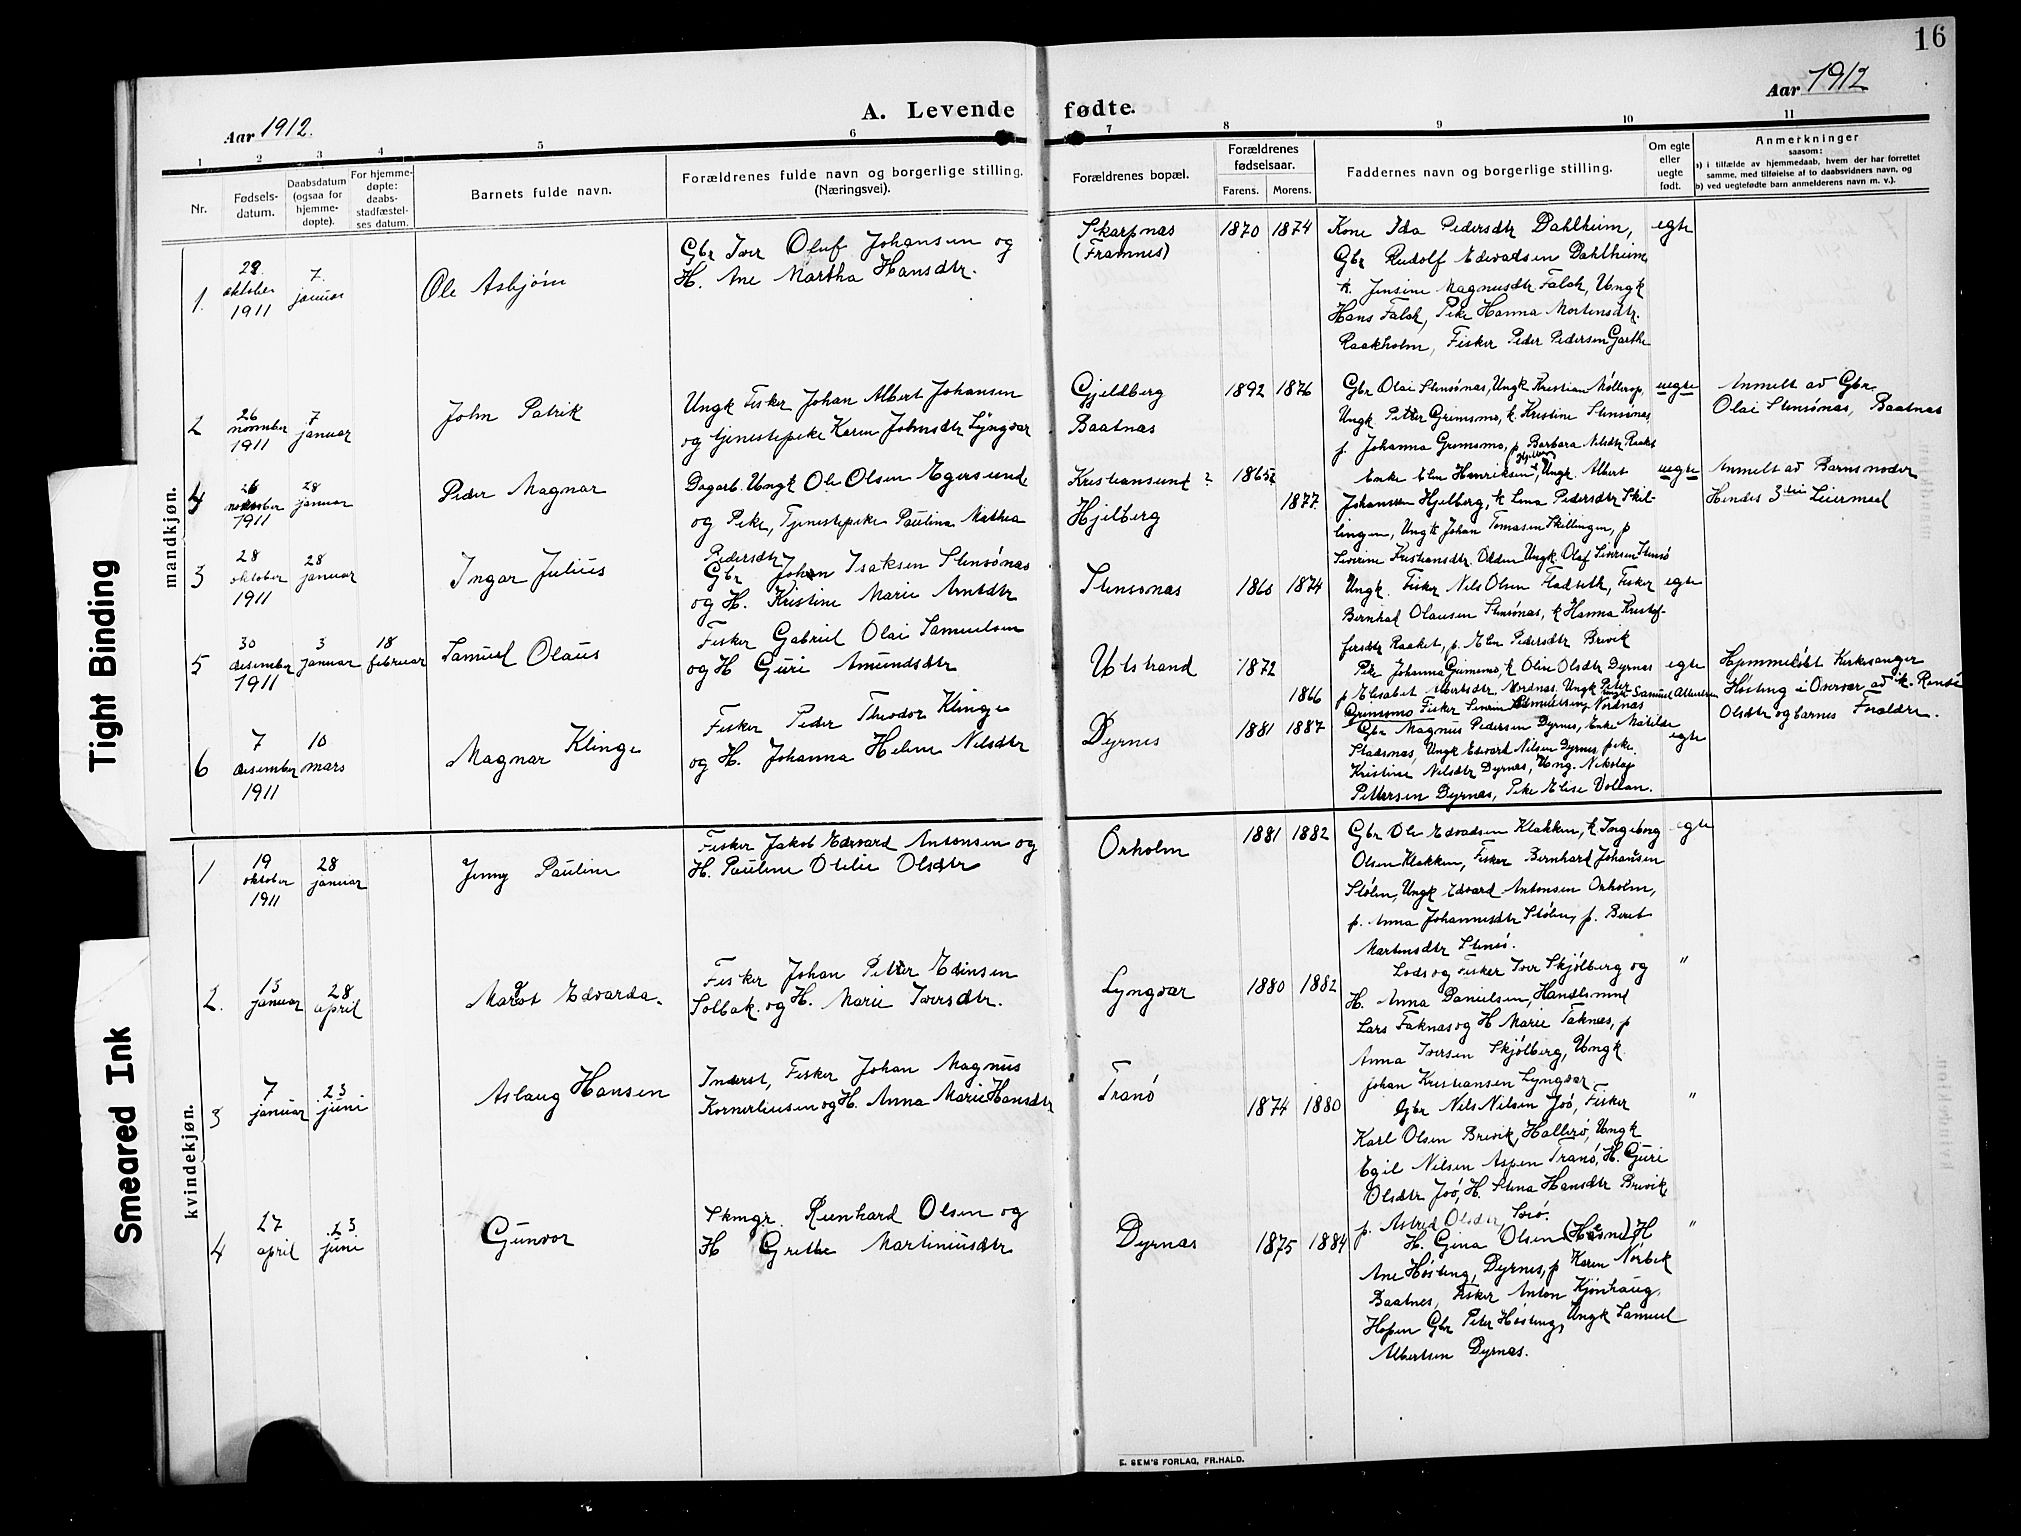 16
Aar 1912.
A. Levende fødte.
Aar 1912
1 2 3 4 5 6 7 8 9 10 11
Nr.
Fødsels-
datum.
Daabsdatum
(ogsaa for
hjemme-
døpte).
For hjemme-
døpte:
daabs-
stadfæstel-
ses datum.
Barnets fulde navn.
Forældrenes fulde navn og borgerlige stilling.
(Næringsvei).
Forældrenes bopæl.
Forældrenes
fødselsaar.
Farens. Morens.
Faddernes navn og borgerlige stilling.
Om egte
eller
uegte
født.
Anmerkninger
saasom:
a) i tilfælde av hjemmedaab, hvem der har forrettet
samme, med tilføielse af to daabsvidners navn, og
b) ved uegtefødte barn anmelderens navn m. v.).
mandkjøn.
1
29.
oktober
1911
7.
januar
Ole Asbjørn
Gbr Iver Oluf Johansen og
H. Ane Martha Hansdtr.
Skarpnas
(Framnes)
1870 1874
Kone Ida Pedersdtr Dahlheim,
Gbr Rudolf Edvadsen Dahlheim
k. Jensine Magnusdtr Falch, Ungk
Hans Falch, Pike Hanna Mortensdtr.
Raakholm, Fisker Peder Pedersen Garthe
egte
2
26
november
1911
7
januar
John Patrik
Ungk Fisker Johan Albert Johansen
og tjenestepike Karen Johnsdtr Lyngvær
Gjeldberg
Baatnas
1892 1876
Gbr Olai Stensønas, Ungk Kristian Møllerop,
Ungk Petter Grimsmo, k. Kristine Stensønas,
p. Johanna Grimsmo, p Barbara Nilsdtr Raaket
uegte
Anmelt av Gbr
Olai Stensønas, Baatnas
4
26
november
1911
28
januar
Peder Magnar
Dagarb. Ungk Ole Olsen Egersund
og Pike, Tjenestepike Paulina Mathea
Pedersdtr
Kristiansund ?
Hjelberg
1865?
1877.
Enke Elen Henriksen, Ungk. Albert
Johansen Hjelberg, k Lina Pedersdtr Skil-
lingen, Ungk Johan Tomasen Skillingen, p
Severine Kristiansdtr. Odden Ungk. Olaf Iversen Stensø
uegte
Anmelt av Barnsmoder
Hendes 3die Leiermaal
3
28
oktober
1911
28
januar
Ingar Julius
Gbr Johan Isaksen Stensønas
og H. Kristine Marie Arntdtr
Stensønas
1860 1874
Ungk. Fisker Nils Olsen Fladseth, Fisker
Bernhad Olausen Stensønas, k Hanna Kristof-
fersdtr Raaket, p. Elen Pedersdtr Brevik
egte
5
30
desember
1911
3
januar
18
februar
Samuel Olaus
Fisker Gabriel Olai Samuelsen
og H Guri Amundsdtr
Utstrand
1872
1866
Pike Johanna Grimsmo, k Oline Olsdtr Dyrnas
p Elisabet Albertsdtr Nordnas. Ungk Peter
Ungk Samuel Albertsen
Grimsmo Fisker Severin Samuelsen, Nordnas
egte
Hjemmedøbt Kirkesanger
Høsteng i Overvær av k. Rensø
Olsdtr og barnes Foraldre.
6
7
desember
1911
10
mars
Magnar Klinge
Fisker Peder Theodor Klinge
og H. Johanna Helene Nilsdtr
Dyrnes
1881 1887
Gbr Magnus Pedersen Dyrnes, Enke Matilde
Stadsnas, Ungk Edvard Nilsen Dyrnes, pike.
Kristine Nilsdtr Dyrnas, Ung. Nikolai
Pettersen Dyrnas, Pike Elise Vollan.
egte
kvindekjøn.
1
19
oktober
1911
28
januar
Jenny Pauline
Fisker Jakob Edvard Antonsen og
H. Pauline Otilie Olsdtr
Orholm
1881 1882
Gbr Ole Edvadsen Klakken, k Ingeborg
Olsen Klakken, Fisker Bernhard Johansen
Stølen, Ungk Edvard Antonsen Orholm,
p. Anna Johannesdtr Stølen, p. Beret
Martensdtr Stensø.
egte
2.
13
januar
28
april
Margot Edvarda.
Fisker Johan Petter Edinsen
Solbak. og H. Marie Iversdtr.
Lyngvar
1880 1882
Lods og Fisker Iver Skjølberg og
H. Anna Danielsen, Handlsmnd
Lars Faknas og H Marie Faknes, p
Anna Iversen Skjølberg, Ungk
Johan Kristiansen Lyngvar
"
3
7
januar
23
juni
Aslaug Hansen
Inderst, Fisker Johan Magnus
Korneliusen og H. Anna Marie Hansdtr
Tranø
1874 1880
Gbr Nils Nilsen Joø, Fisker
Karl Olsen Brevik, Hallerø, Ungk
Egil Nilsen Aspen Tranø, H. Guri
Olsdtr Joø, H. Stina Hansdtr Brevik,
p. Astrid Olsdtr, Joø.
"
4
27
april
23
juni
Gunvor
Skmgr. Reinhard Olsen og
H Grethe Martiniusdtr
Dyrnas
1875 1884
H. Gina Olsen (Hasnes) H
Ane Høsteng, Dyrnes, p Karen Norbek
Baatnes, Fisker Anton Kjønhaug,
Hopen Gbr Peter Høsteng, Ungk Samuel
Albertsen Dyrnas.
"
E. SEM'S FORLAG, FR.HALD.
Tight Binding
Smeared Ink